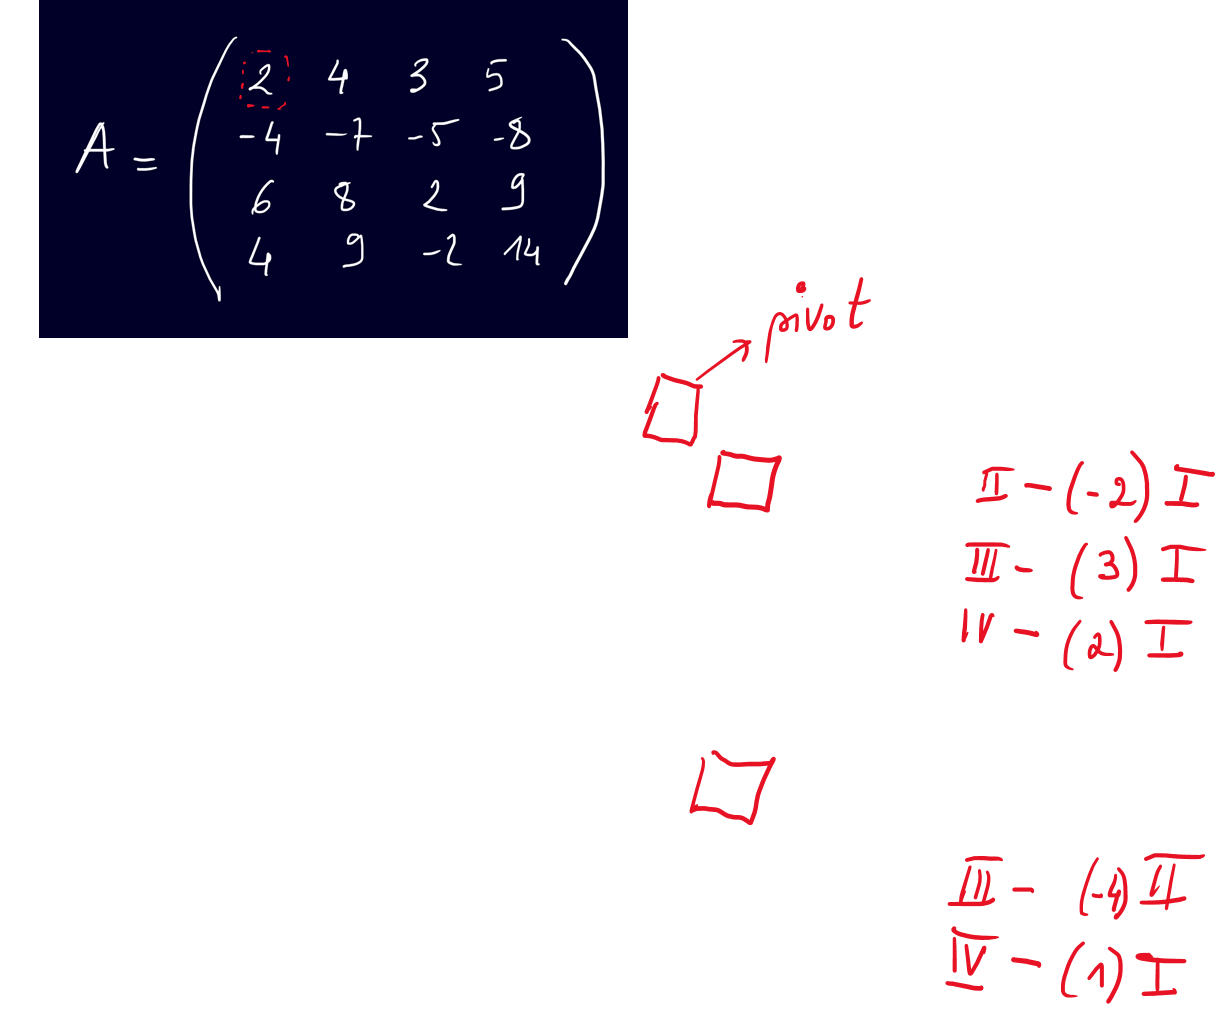 2 4 3 5
A = -4 -7 -5 -8
6 8 2 9
4 9 -2 14
pivot
II - (-2) I
III - (3) I
IV - (2) I
III - (-4) II
IV - (1) I